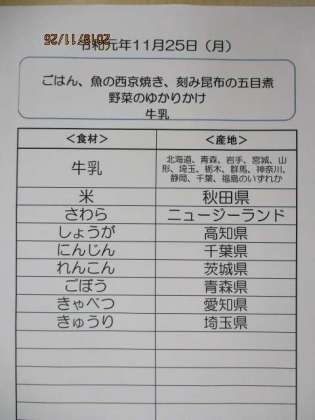 2019/11/25
令和元年11月25日（月）
ごはん、魚の西京焼き、刻み昆布の五目煮
野菜のゆかりかけ
牛乳
＜食材＞ ＜産地＞
牛乳 北海道、青森、岩手、宮城、山
形、埼玉、栃木、群馬、神奈川、
静岡、千葉、福島のいずれか
米 秋田県
さわら ニュージーランド
しょうが 高知県
にんじん 千葉県
れんこん 茨城県
ごぼう 青森県
きゃべつ 愛知県
きゅうり 埼玉県